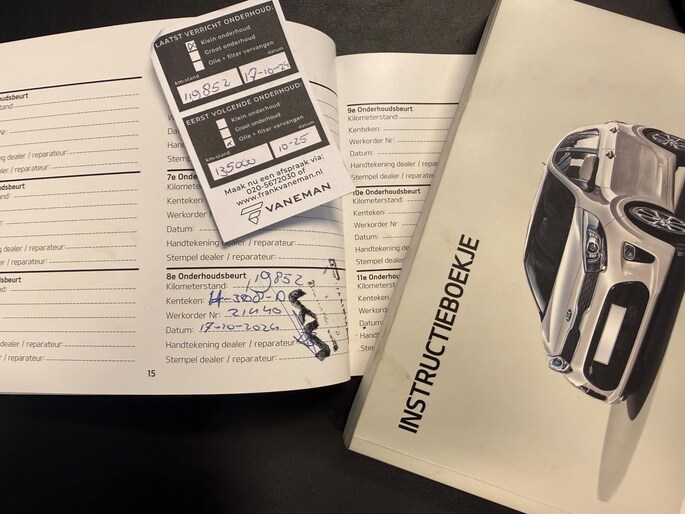 LAATST VERRICHT ONDERHOUD:
Klein onderhoud
Groot onderhoud
Olie + filter vervangen
km-stand datum
119852 17-10-24
EERST VOLGENDE ONDERHOUD:
Klein onderhoud
Groot onderhoud
Olie + filter vervangen
km-stand datum
135000 10-25
Maak nu een afspraak via:
020-5672030 of
www.frankvaneman.nl
VANEMAN
Onderhoudsbeurt
dealer / reparateur:
/ reparateur:
dealer / reparateur:
/ reparateur:
dealer / reparateur:
/ reparateur:
7e
Kenteken:
Werkorder Nr:
Datum:
Handtekening dealer / reparateur:
Stempel dealer / reparateur:
8e Onderhoudsbeurt
Kilometerstand: 119852
Kenteken:
Werkorder Nr: 21440
Datum: 17-10-2024
Handtekening dealer / reparateur:
Stempel dealer / reparateur:
15
9e Onderhoudsbeurt
Kilometerstand:
Kenteken:
Werkorder Nr:
Datum:
Handtekening dealer / reparateur:
Stempel dealer / reparateur:
10e Onderhoudsbeurt
Kilometerstand:
Kenteken:
Werkorder Nr:
Datum:
Handtekening dealer
Stempel dealer
11e Onderhoudsbeurt
Kenteken:
Datum
INSTRUCTIEBOEKJE